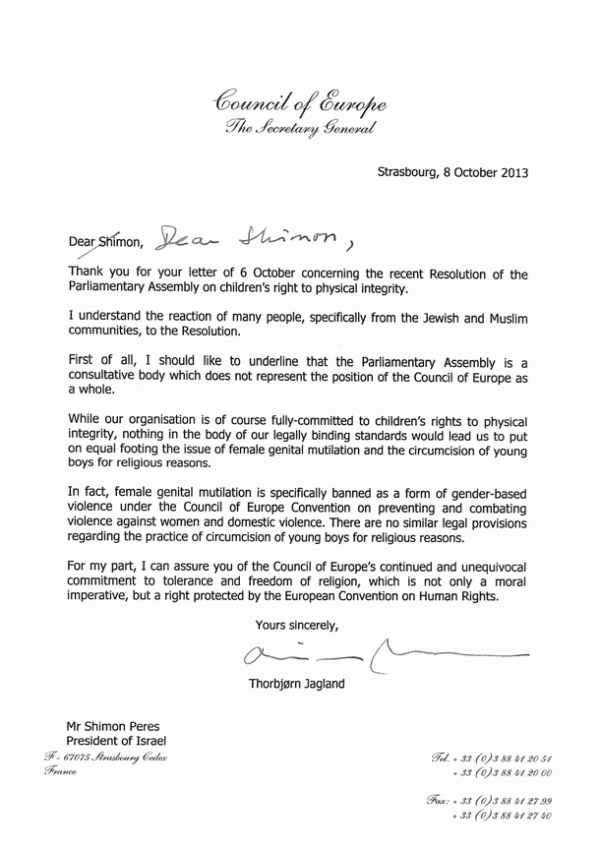 Council of Europe
The Secretary General
Strasbourg, 8 October 2013
Dear Shimon, Dear Shimon,
Thank you for your letter of 6 October concerning the recent Resolution of the
Parliamentary Assembly on children's right to physical integrity.
I understand the reaction of many people, specifically from the Jewish and Muslim
communities, to the Resolution.
First of all, I should like to underline that the Parliamentary Assembly is a
consultative body which does not represent the position of the Council of Europe as
a whole.
While our organisation is of course fully-committed to children's rights to physical
integrity, nothing in the body of our legally binding standards would lead us to put
on equal footing the issue of female genital mutilation and the circumcision of young
boys for religious reasons.
In fact, female genital mutilation is specifically banned as a form of gender-based
violence under the Council of Europe Convention on preventing and combating
violence against women and domestic violence. There are no similar legal provisions
regarding the practice of circumcision of young boys for religious reasons.
For my part, I can assure you of the Council of Europe's continued and unequivocal
commitment to tolerance and freedom of religion, which is not only a moral
imperative, but a right protected by the European Convention on Human Rights.
Yours sincerely,
Thorbjørn Jagland
Mr Shimon Peres
President of Israel
F - 67075 Strasbourg Cedex
France
Tel. + 33 (0)3 88 41 20 51
+ 33 (0)3 88 41 20 00
Fax: + 33 (0)3 88 41 27 99
+ 33 (0)3 88 41 27 40